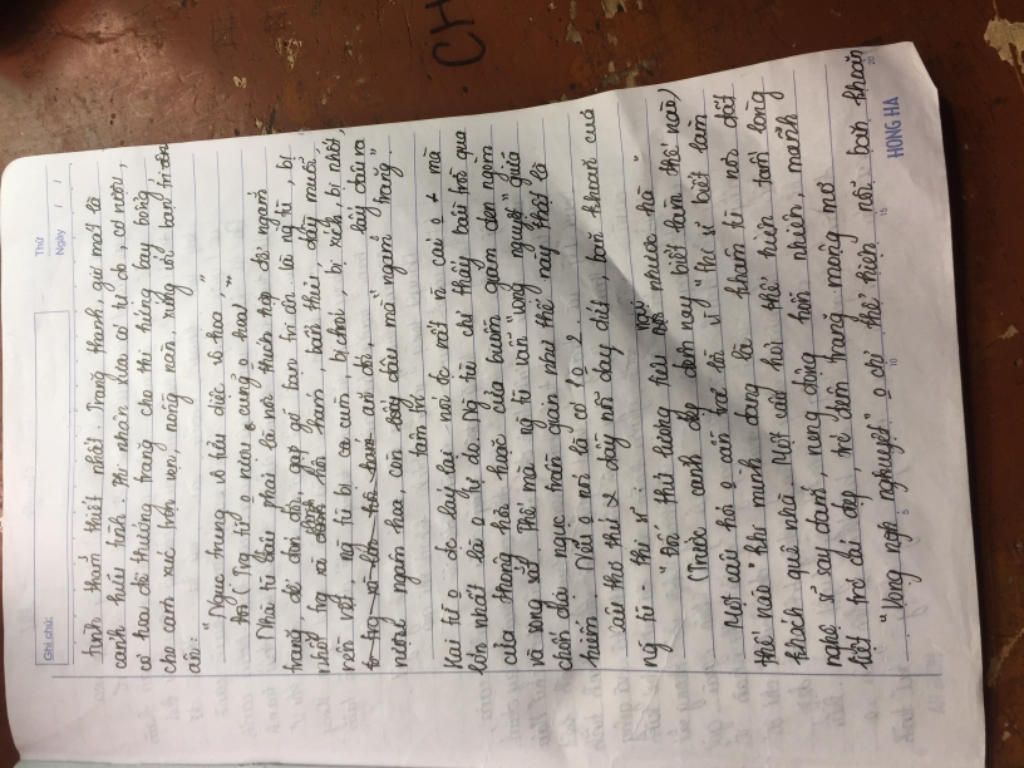 CH
Ghi chú:
Thứ
Ngày / /
tình thắm thiết nhất. Trăng thanh, gió mát là
cảnh hữu tình. Thi nhân xưa có tự do, có rượu,
có hoa để thưởng trăng cho thi hứng bay bổng,
cho cảm xúc trọn vẹn, nồng nàn, rung
ấn:
"Ngục trung vô tửu diệc vô hoa,"
(Trg tù o rượu cũng o hoa)
Nhà tù đâu phải là nơi thích hợp để ngắm
trăng, để đón đợi, gặp gỡ bạn tri âm là ng tù, bị
nhốt trg xà lim hôi hám, bẩn thỉu, đầy muỗi,
rệp vậy, ng tù bị cơ cùm, bị chói, bị xích, bị nhốt,
lấy đâu ra
rượu ngắm hoa, còn đâu mà "ngắm trăng"
Hai từ o đc lặp lại nói đc rất rõ cái o mà
lớn nhất là o tự do. Ng tù chỉ thấy bầu trời qua
của thông hò hước của buồng giam đen ngòm
và song sắt. Thế mà ng tù vẫn "vọng nguyệt" giữa
chốn địa ngục trần gian như thế này thật là
hiếm. Nêu o nói là có 1 o 2.
Câu thơ thứ 2 dấy nỗi day dứt, băn khoăn của
ng tù - thi sĩ:
"Đối thử lương tiêu nại nhược hà"
(Trước cảnh đẹp đêm nay biết làm thế nào)
Mơ câu hỏi o cần trả lời vì "thi sĩ biết làm
thế nào" khi mình đang là khám tù nơi đất
khách quê nhà. Một câu hỏi thể hiện tâm lòng
nghệ sĩ say đắm, rung động hồn nhiên, mãnh
liệt trc cái đẹp, trc đêm trăng mộng mơ
"Vọng ngh nguyệt" o chỉ thể hiện nỗi băn khoăn
5
10
15
20
HONG HA